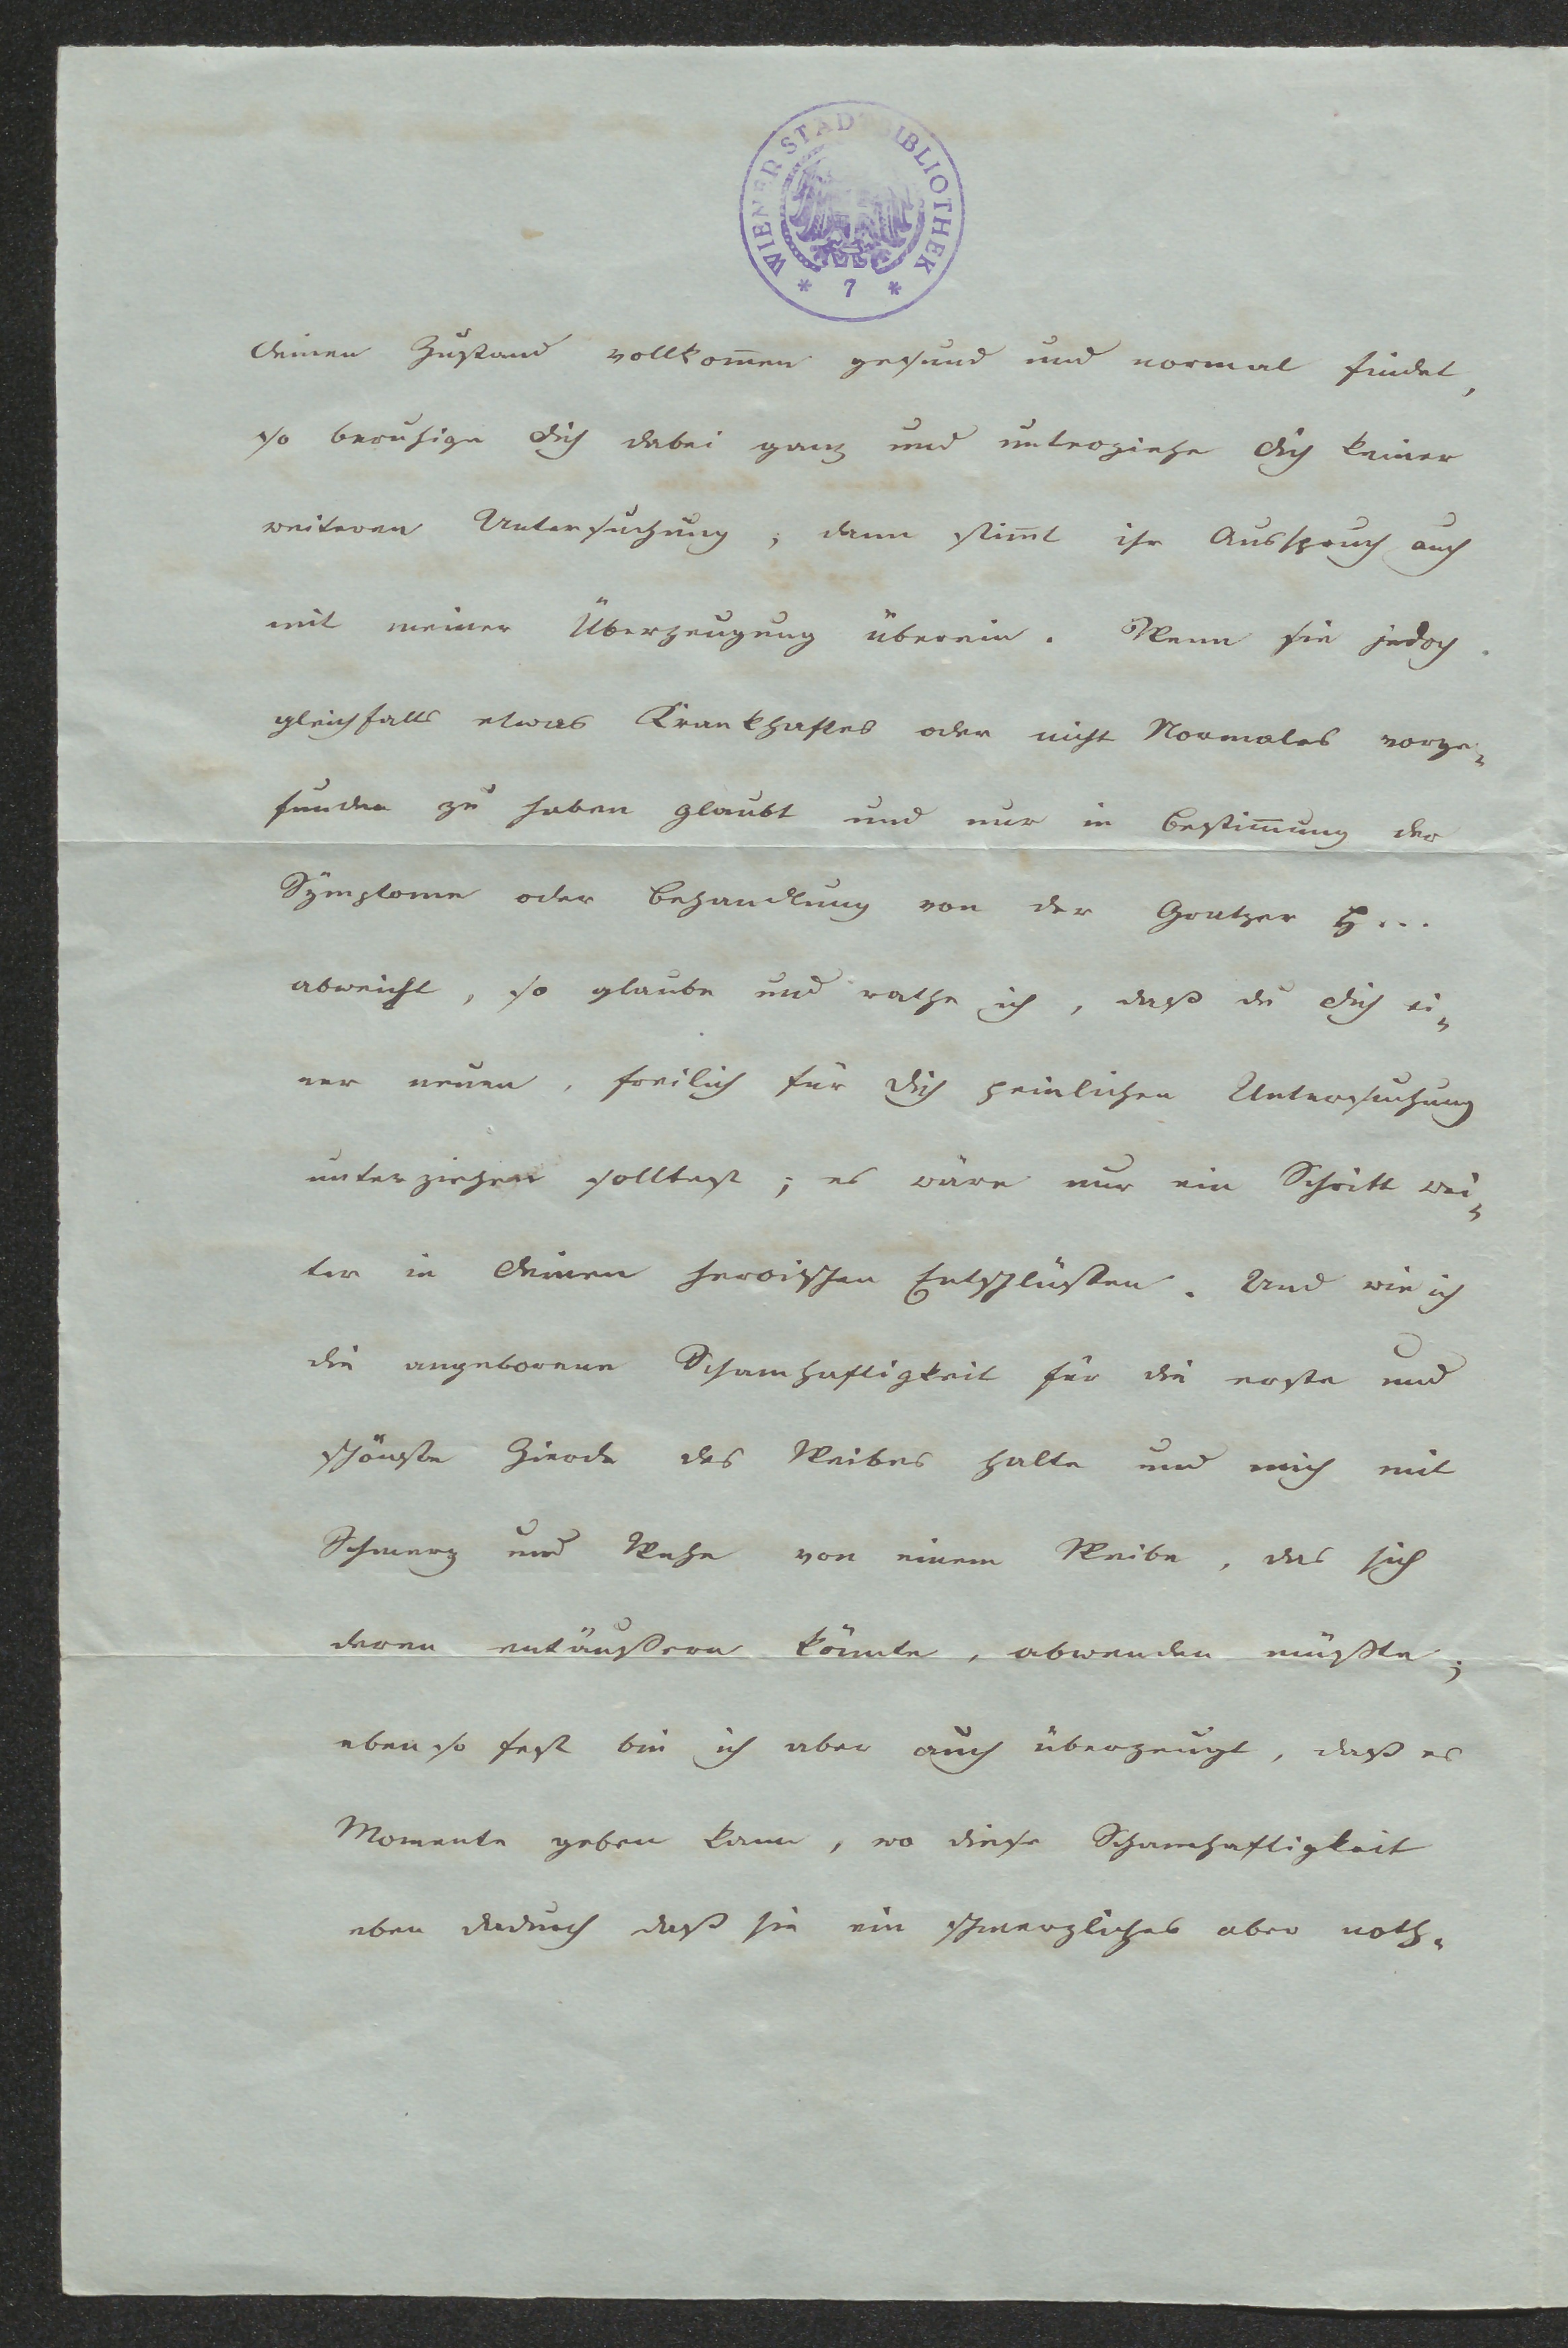 WIENER STADTBIBLIOTHEK
* 7 *
deinen Zustand vollkom̅en gesund und normal findet,
so beruhige dich dabei ganz und unterziehe dich keiner
weiteren Untersuchung; dann stim̅t ihr Ausspruch auch
mit meiner Überzeugung überein. Wenn sie jedoch
gleichfalls etwas Krankhaftes oder nicht Normales vorge-
funden zu haben glaubt und nur in Bestim̅ung der
Symptome oder Behandlung von der Gratzer H...
abweicht, so glaube und rathe ich, daß du dich ei-
ner neuen, freilich für dich peinlichen Untersuchung
unterziehen solltest; es wäre nur ein Schritt wei-
ter in deinen heroischen Entschlüssen. Und wie ich
die angeborene Schamhaftigkeit für die erste und
schönste Zierde des Weibes halte und mich mit
Schmerz und Wehe von einem Weibe, das sich
deren entäußern könnte, abwenden müßte;
eben so fest bin ich aber auch überzeugt, daß es
Momente geben kann, wo diese Schamhaftigkeit
eben dadurch daß sie ein schmerzliches aber noth-